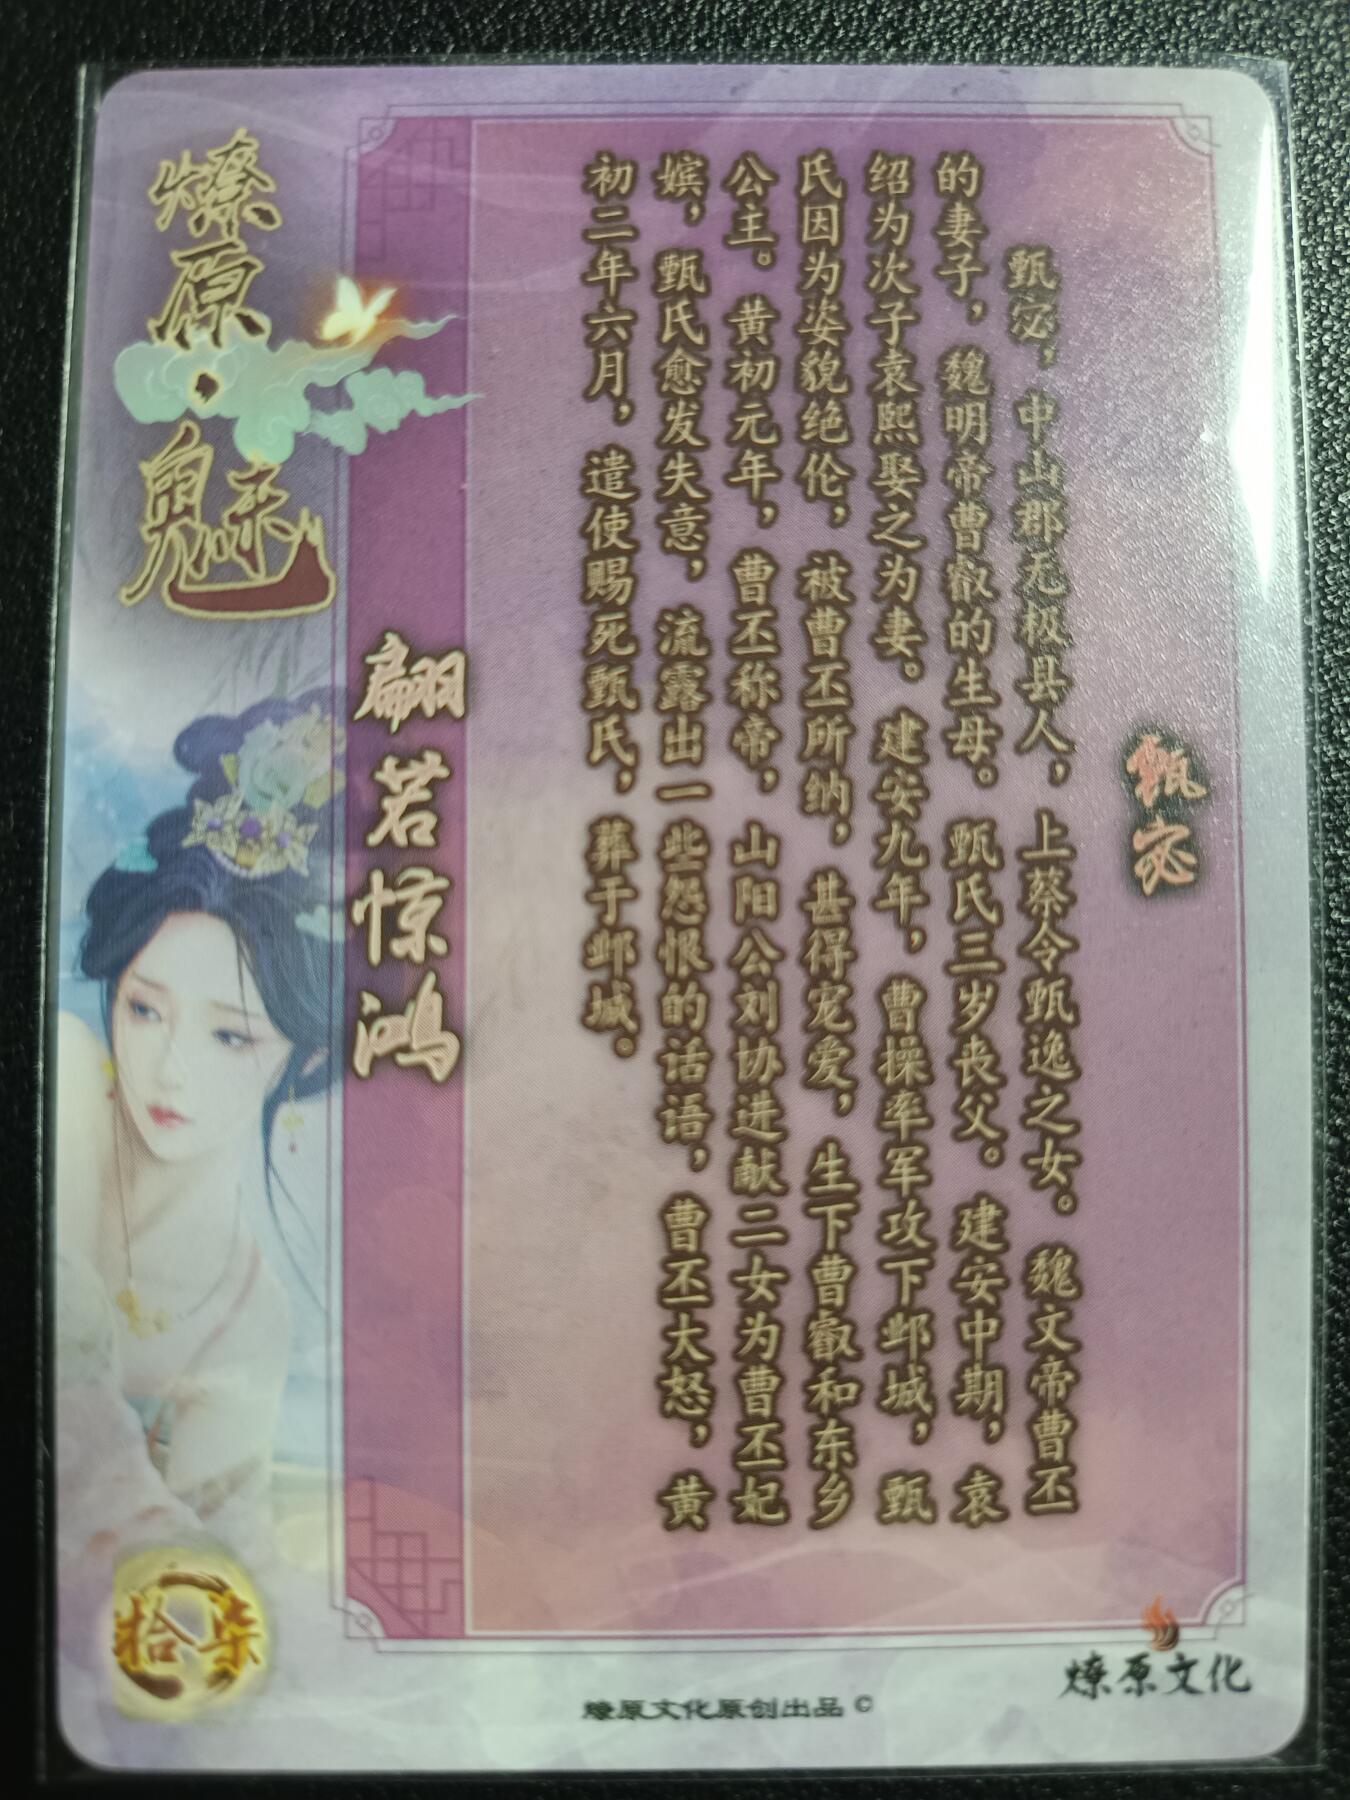 甄宓
甄宓，中山郡无极县人，上蔡令甄逸之女。魏文帝曹丕
的妻子，魏明帝曹叡的生母。甄氏三岁丧父。建安中期，袁
绍为次子袁熙娶之为妻。建安九年，曹操率军攻下邺城，甄
氏因为姿貌绝伦，被曹丕所纳，甚得宠爱，生下曹叡和东乡
公主。黄初元年，曹丕称帝，山阳公刘协进献二女为曹丕妃
嫔，甄氏愈发失意，流露出一些怨恨的话语，曹丕大怒，黄
初二年六月，遣使赐死甄氏，葬于邺城。
翩若惊鸿
燎原·魅
拾柒
燎原文化
燎原文化原创出品 ©